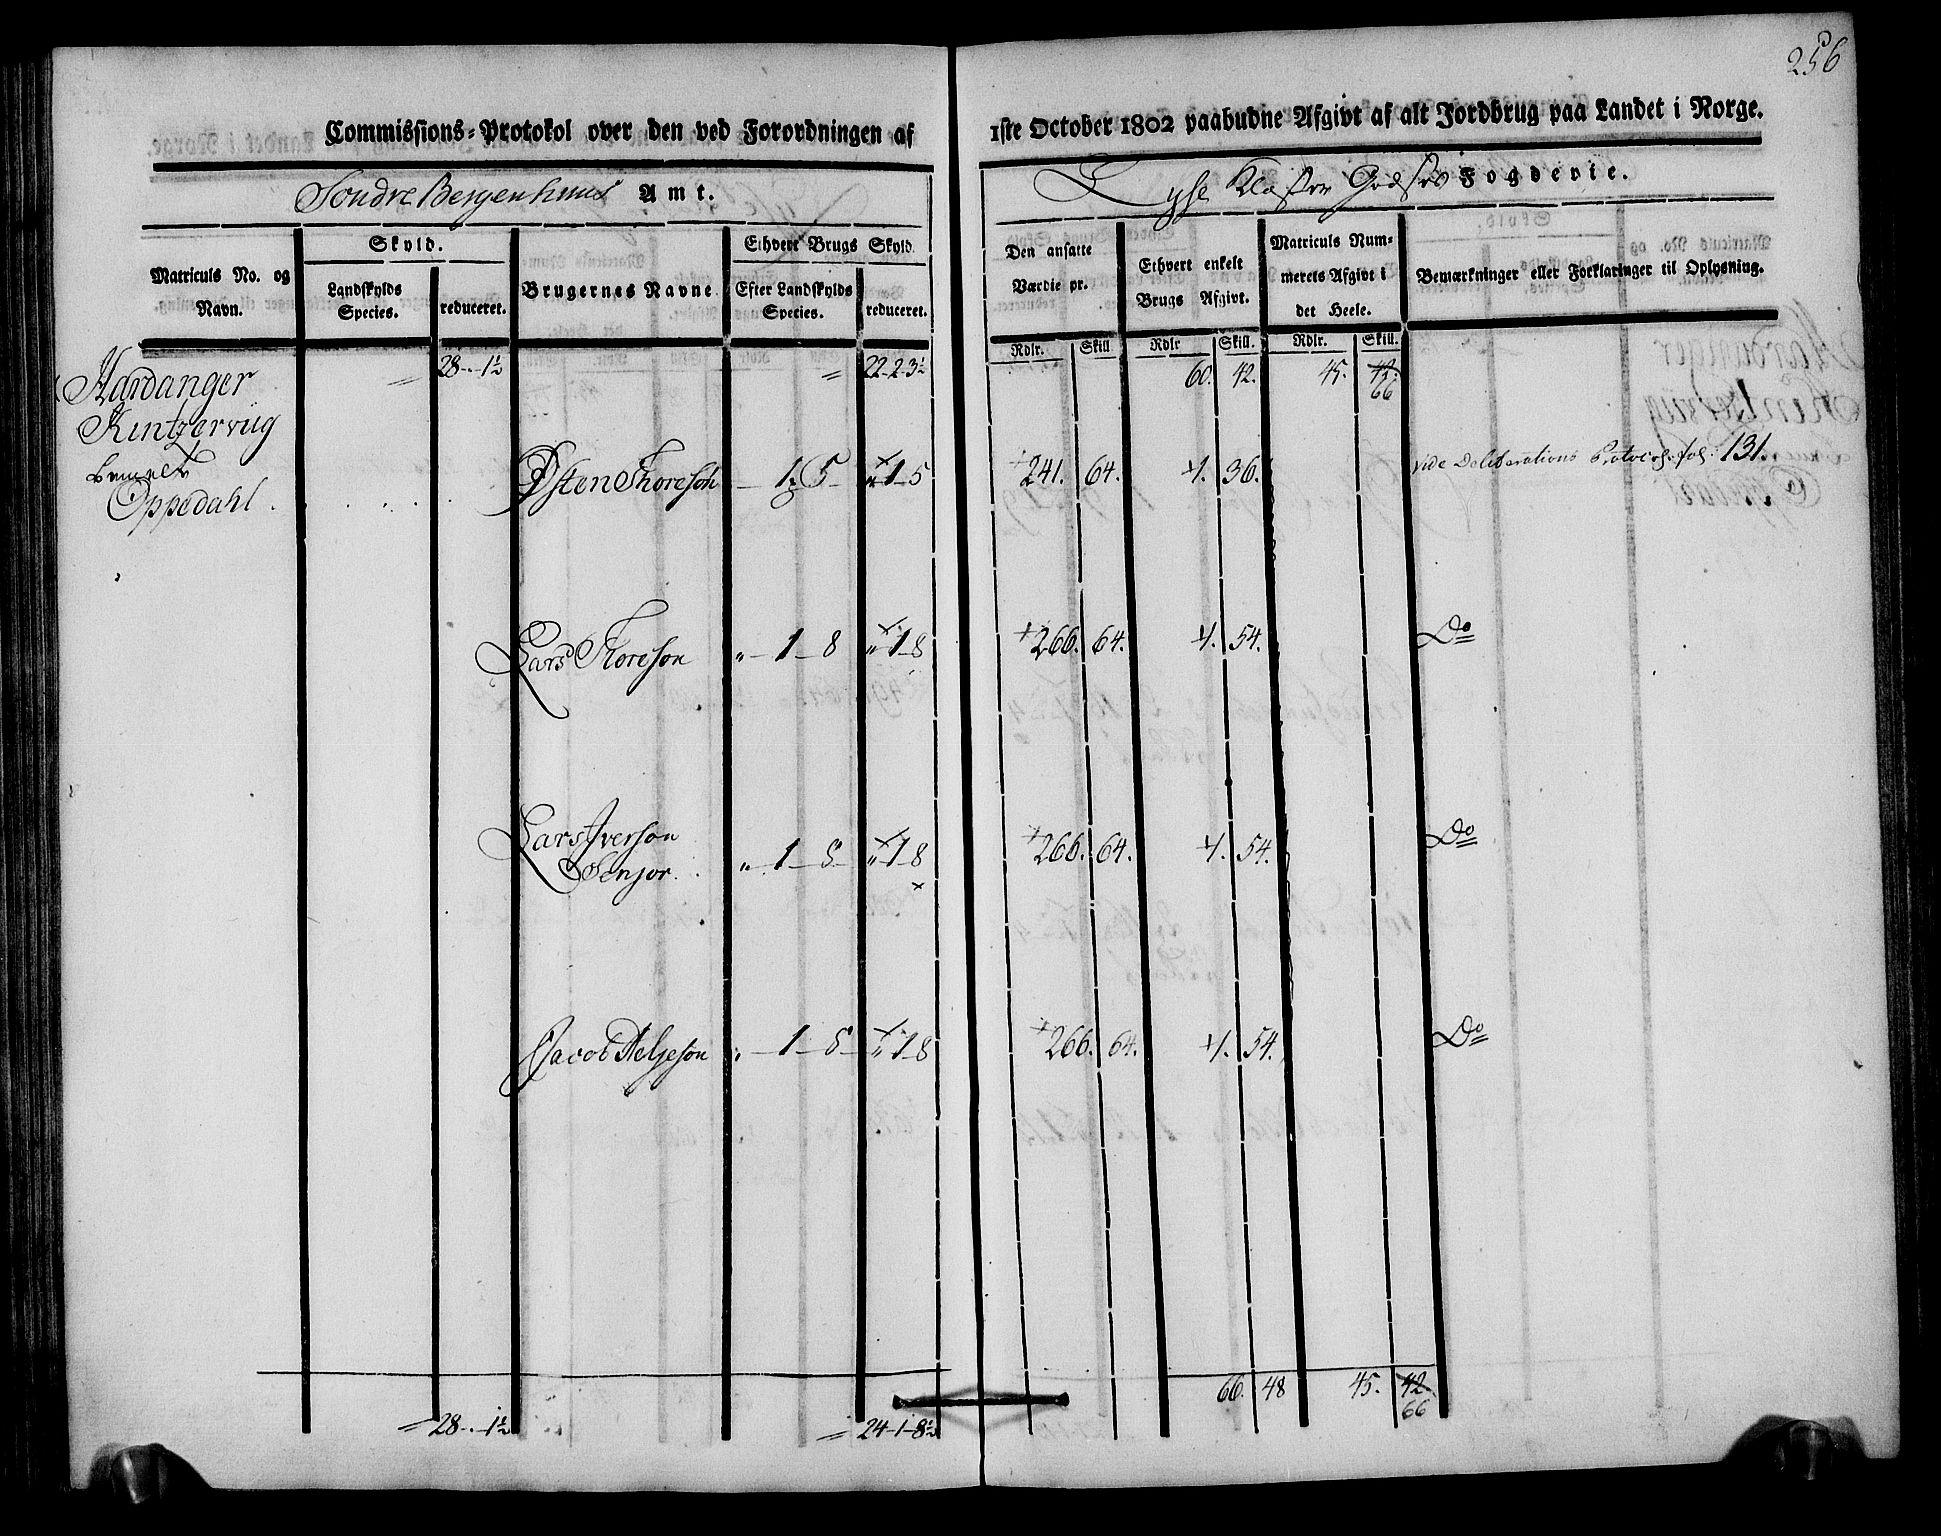 256
Commissions-Protokol over den ved Forordningen af 1ste October 1802 paabudne Afgivt af alt Jordbrug paa Landet i Norge.
Søndre Bergenhuus Amt. Lyse Kloster Godses Fogderie.
Matriculs No. og Navn.
Skyld.
Landskylds Species.
reduceret.
Brugernes Navne
Ethvert Brugs Skyld.
Efter Landskylds Species.
reduceret.
Den ansatte Værdie pr.
Rdlr. Skill
Ethvert enkelt Brugs Afgivt.
Rdlr Skill.
Matriculs Nummerets Afgivt i det Heele.
Rdlr. Skill.
Bemærkninger eller Forklaringer til Oplysning.
Hardanger = 28-.-1½ = 22-2-3½ 60. 42. 45. 42. 66
Kintzerviig
Oppedahl . Østen Thoreson - 1. 5 - " 1-5 241. 64. 1. 36. vide Deliberations Protoc: fol: 131.
Lars Thoreson " - 1 - 8 " 1-8 266. 64. 1. 54. Do
Lars Iverson
Senjor. " - 1 - 8 " 1-8 266. 64. 1. 54. Do
Jacob Helgeson " - 1 - 8 - " 1-8 266. 64. 1. 54. Do
66. 48 45. 42. 66
= 28-.-1½ = 24-1-8½